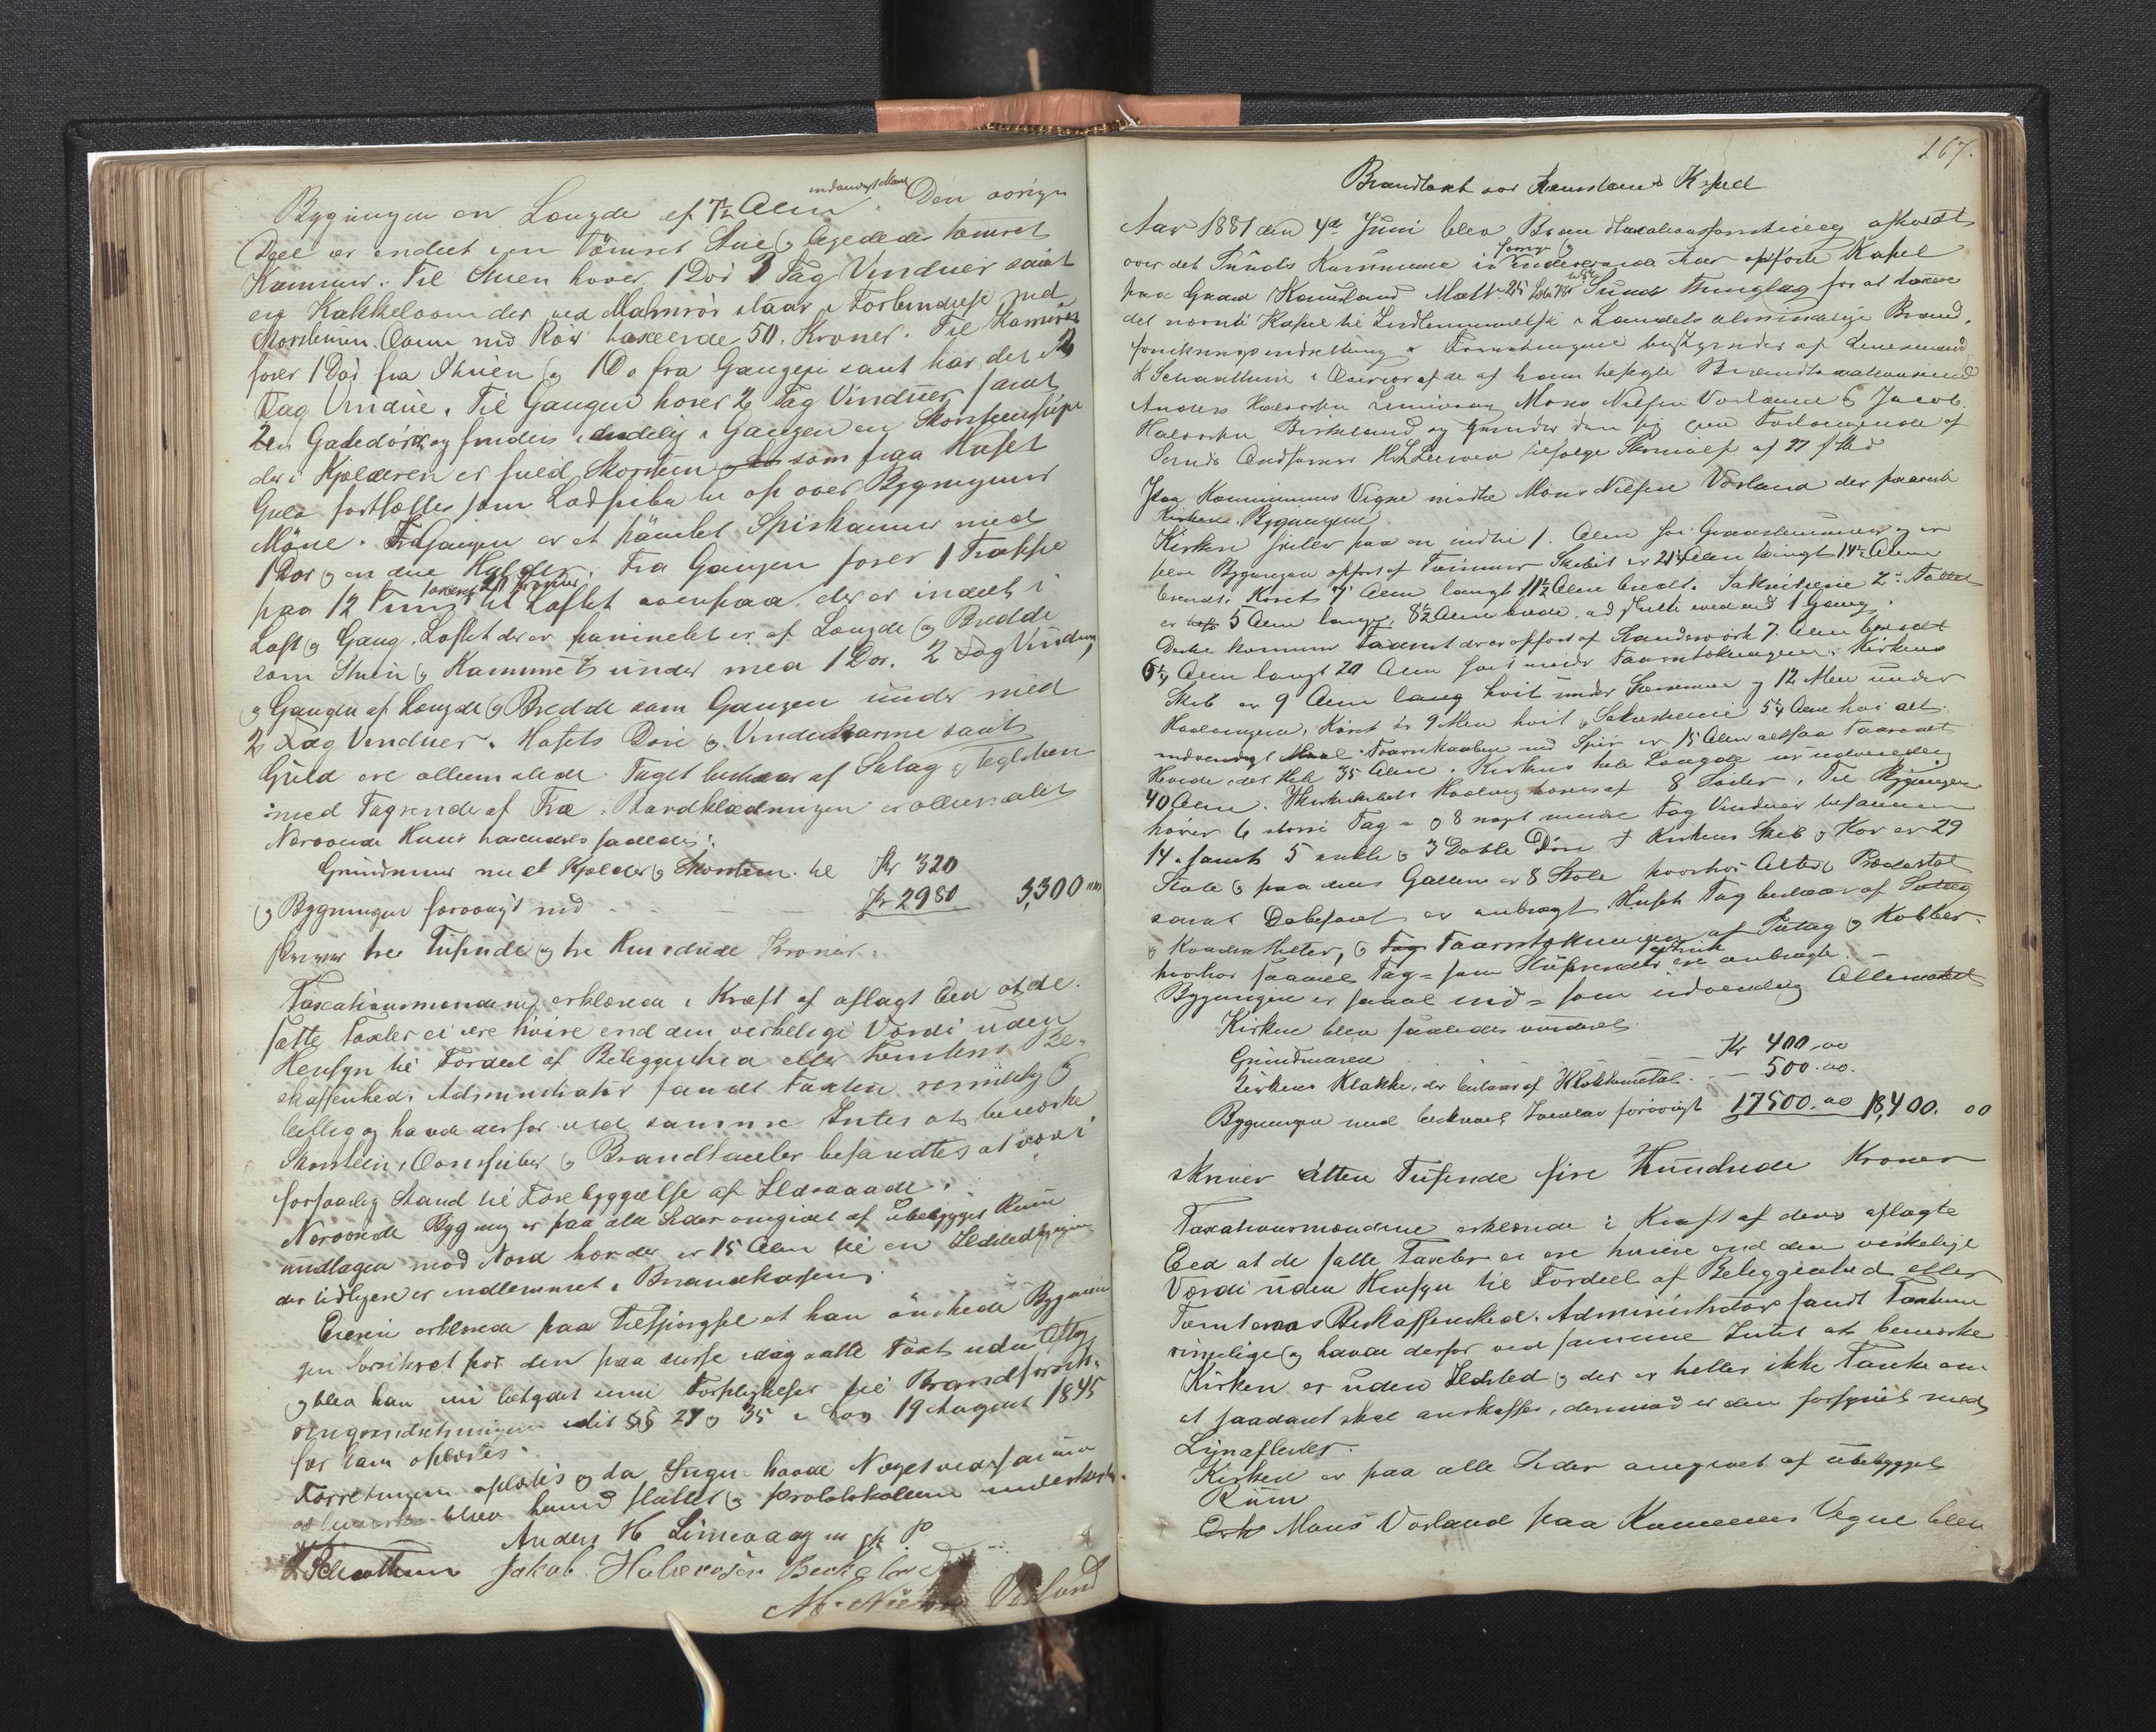 indvendigt Maal
Bygningen en Længde af 7½ Alen. Den øvrige
Deel er indeelt i en tømret Stue og ligeledes tømret
Kammer. Til Stuen hører 1 Dør 3 Fag Vinduer samt
en Kakkelovn der ved Malmrør staar i Forbindelse med
Skorstenen. Ovn med Rør taxerede 50 Kroner. Til Kammeret
fører 1 Dør fra Stuen og 1 Do fra Gangen samt har det 2
Fag Vindue. Til Gangen hører 2 Fag Vinduer samt
2 Gadedører og findes endelig i Gangen en Skorstenspibe
der i Kjælderen er fuld Skorsten som fraa Huset
Gulv fortsættes som Lodpibe til op over Bygningens
Møne. Fra Gangen er et pänelet Spiskammer med
1 Dør og en
Fra Gangen fører 1 Trappe
taxeret 20 Kroner
paa 12 Trin til Loftet ovenpaa der er indeelt i
Loft og Gang. Loftet der er paninelet er af Længde og Bredde
som Stuen og Kammeret under med 1 Dør, 2 Fag Vinduer
og Gangen af Længde og Bredde som Gangen under med
2 Fag Vinduer. Husets Døre og Vindukarme samt
Guld ere allemalede. Taget bestaar af Sutag og Teglsten
med Tagrender af Træ. Bordklædningen er oliemalet
Nærværende Huus taxeredes saaledes:
Grundmuur med Kjælder og Skorsten til Kr 320
og Bygningen forøvrigt med - - - Kr 2980 3,300
skriver tre Tusinde og tre Hundrede Kroner.
Taxationsmændene erklærede i Kraft af aflagt Eed at de
satte Taxter ei ere høiere end den virkelige Værdi uden
Hensyn til Fordeel af Beliggenhed eller Tomtens Be-
skaffenhed. Administrator fandt Taxten rimelig og
billig og havde derfor ved samme Intet at bemærke
Skorsten, Ovnspiber og Brandtavler befandtes at være i
forsvarlig Stand til Forebyggelse af Ildsvaade.
Nærværende Bygning er paa alle Sider omgivet af übebygget Rum
undtagen mod Nord hvor der er 15 Alen til en Ildstedbygning
der tidligere er indlemmet i Brandkassen.
Eieren erklærede paa Tilspørgsel at han ønskede Bygnin-
gen forsikret for den paa disse idag satte Taxt uden Aftag
og blev han nu betydet sine Forpligtelser til Brandforsik-
ringsindretningen idet §§ 27 og 35 i Lov 19 August 1845
for ham oplæstes.
Forretningen oplæstes og da Ingen havde Noget ved samme
at bemærke blev hermed sluttet og Protokollen underskrevet.
Anders H Limevaagen
L Schathun Jakob Halvorsen Berkeland
M. Nielsen Vorland
267.
Brandtaxt over Kausland Kapel
Aar 1881 den 4de Juni blev Brandtaxationsforretning afholdt
over det Sunds Kommune
opførte Kapel
paa Gaard Kausland Matr. 25
Sunds Thinglag for at taxere
det nævnte Kapel til Indlemmelse i Landets almindelige Brand-
forsikringsindretning. Forretningen bestyredes af Lensmand
L Schaathun i Overvær af de af ham tilsagte Brandtaxationsmænd
Anders Halvorsen Limevaag, Mons Nielsen Vorland og Jacob
Halvorsen Birkeland og grunder den sig paa Forlangende af
Sunds Ordfører
ifølge Skrivelse af 27 f Md
Paa Kommunens Vegne mødte Mons Nielsen Vorland der paaviste
Kirken Bygningen
Kirken hviler paa en indtil 1 Alen høi Graastensmuur og er
selve Bygningen opført af Tømmer. Skibet er 21¼ Alen langt 14½ Alen
bredt, Koret 7 Alen langt 11½ Alen bredt. Sakristiene 2 i Tallet
er 5 Alen lange, 8½ Alen brede, adskilte ved 1 Gang.
Derhos kommer Taarnet der er opført af Standerværk 7 Alen bredt
6¼ Alen langt 20 Alen høit under Taarntækningen. Kirkens
Skib er 9 Alen høit under Stenene og 12 Alen under
Hvælvingen, Koret er 9 Alen høit, Sakristiene 5¼ Alen høi alt
indvendigt Maal. Taarnkuplen med Spir er 15 Alen altsaa Taarnets
Høide i det Hele 35 Alen. Kirkens hele Længde er udvendig
40 Alen.
Hvælving bæres af 8 Søiler. Til Bygningen
hører 6 større Fag og 8 noget mindre Fag Vinduer tilsammen
14, samt 5 enkle og 3 Doble Døre. I Kirkens Skib og Kor er 29
Stole og paa dens Galleri er 8 Stole hvorhos Alter, Prædestol
samt Døbefont er anbragt. Husets Tag bestaar af Sutag
og Kvadratheller, og Taarntækningen af Sutag og Kobber-
hvorhos saavel Tag- som Stüprender
ere anbragte. -
Bygningen er saavel ind- som udvendig oliemalet
Kirken blev saaledes vurderet
Grundmuren Kr 400,00
Kirkens Klokke, der bestaar af Klokkemetal - - 500.00.
Bygningen med
Inventar forøvrigt 17500.00 18,400. 00
skriver Atten Tusinde fire Hundrede Kroner
Taxationsmændene erklærede i Kraft af deres aflagte
Eed at de satte Taxter ei ere høiere end den virkelige
Værdi uden Hensyn til Fordeel af Beliggenhed eller
Tomtens Beskaffenhed. Administrator fandt Taxterne
rimelige og havde derfor ved samme Intet at bemærke
Kirken er uden Ildsted og der er heller ikke Tanke om
at saadant skal anskaffes, derimod er den forsynet med
Lynafleder.
Kirken er paa alle Sider omgivet af übebygget
Rüm
Mons Vorland paa Kommunens Vegne blev